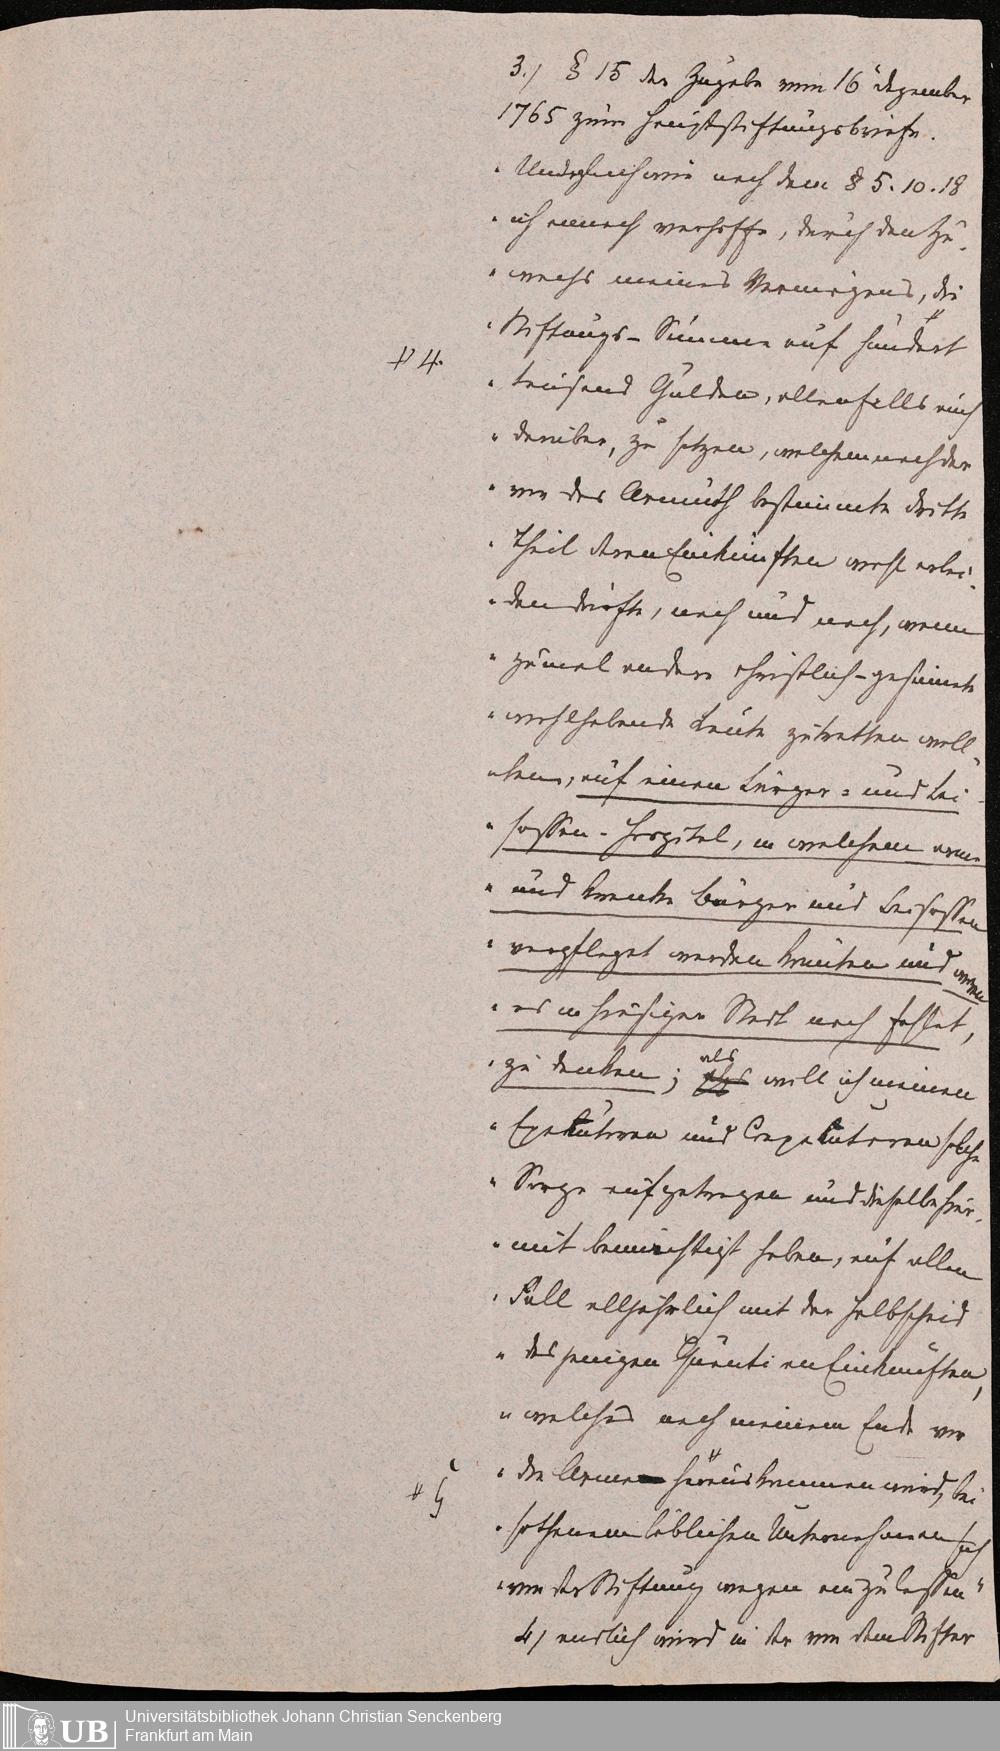 3.) § 15 der Zugabe vom 16 dezember
1765 zum Hauptstiftungsbriefe.
" Undgleichwie nach dem § 5. 10. 18
" ich annoch verhoffe, durch den Zu-
" wachs meines Vermögens, die
" Stiftungs-Summe auf hundert
# 4.
" tausend Gulden, allenfalls auch
" darüber, zu setzen, welchemnach der
" vor das Armuth bestimmte dritte
" Theil deren Einkünften wohl erlei-
" den dürfte, nach und nach, wenn
" zumal andere christlich-gesinnte
" wohlhabende Leute zutretten woll-
" ten, auf einen Bürger= und Bei-
" sassen-Hospital, in welchem arme
" und kranke Bürger und Beisassen
" verpfleget werden könnten und woran
" es in hiesiger Stadt noch fehlet,
" zu denken; als will ich meinen
" Exekutoren und Conexekutoren solche
" Sorge aufgetragen und dieselbe hier-
" mit bemächtigt haben, auf allen
" Fall alljährlich mit der Halbscheid
" desjenigen Quanti an Einkünften,
" welches nach meinem Ende vor
" die Arme herauskommen wird, bei
# 5
" sothanem löblichen Unternehmen sich
" von der Stiftung wegen einzulassen "
4) endlich wird in der von dem Stifter
UB
Universitätsbibliothek Johann Christian Senckenberg
Frankfurt am Main